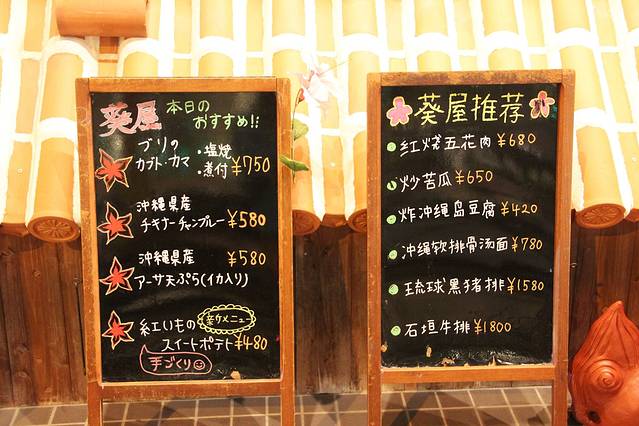 葵屋 本日の
おすすめ!!
ブリの
カブト・カマ
・塩焼
・煮付 ¥750
沖縄県産
チキナーチャンプルー ¥580
沖縄県産 ¥580
アーサ天ぷら(イカ入り)
紅いもの
スイートポテト ¥480
手づくり
葵屋推荐
红烧五花肉 ¥680
炒苦瓜 ¥650
炸冲绳岛豆腐 ¥420
冲绳软排骨汤面 ¥780
琉球黑猪排 ¥1580
石垣牛排 ¥1800